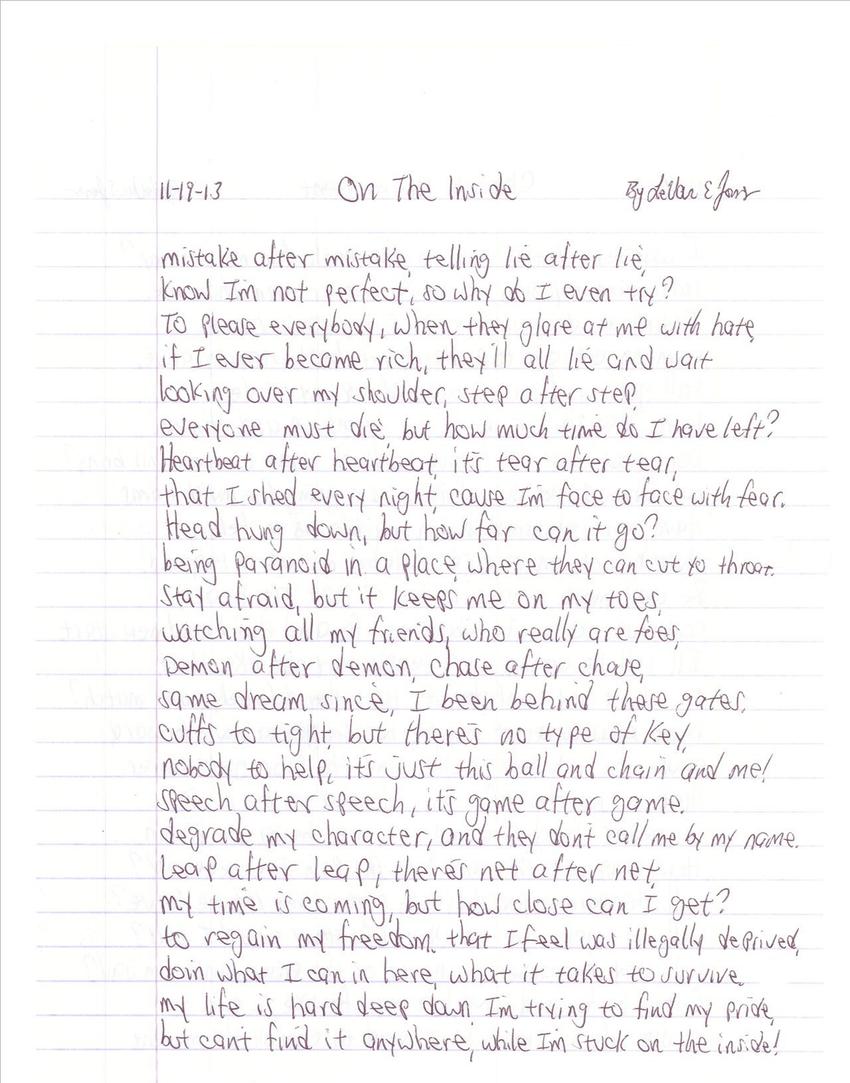 11-19-13 On The Inside By LeVar E Jones
mistake after mistake, telling lie after lie,
know I'm not perfect, so why do I even try?
To please everybody, when they glare at me with hate,
if I ever become rich, they'll all lie and wait
looking over my shoulder, step after step,
everyone must die, but how much time do I have left?
Heartbeat after heartbeat, it's tear after tear,
that I shed every night, cause I'm face to face with fear.
Head hung down, but how far can it go?
being paranoid in a place, where they can cut yo throat.
Stay afraid, but it keeps me on my toes,
watching all my friends, who really are foes,
Demon after demon, chase after chase,
same dream since, I been behind these gates,
cuffs to tight, but there's no type of key,
nobody to help, it's just this ball and chain and me!
Speech after speech, it's game after game.
degrade my character, and they don't call me by my name.
Leap after leap, there's net after net,
my time is coming, but how close can I get?
to regain my freedom, that I feel was illegally deprived,
doin what I can in here, what it takes to survive.
my life is hard deep down, I'm trying to find my pride,
but can't find it anywhere, while I'm stuck on the inside!